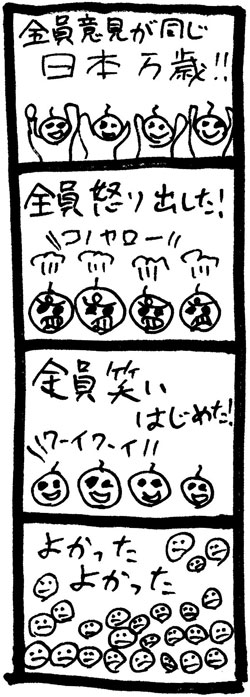 全員意見が同じ
日本万歳!!
全員怒り出した!
コノヤロー!!
全員笑い
はじめた!
ワーイワーイ!!
よかった
よかった